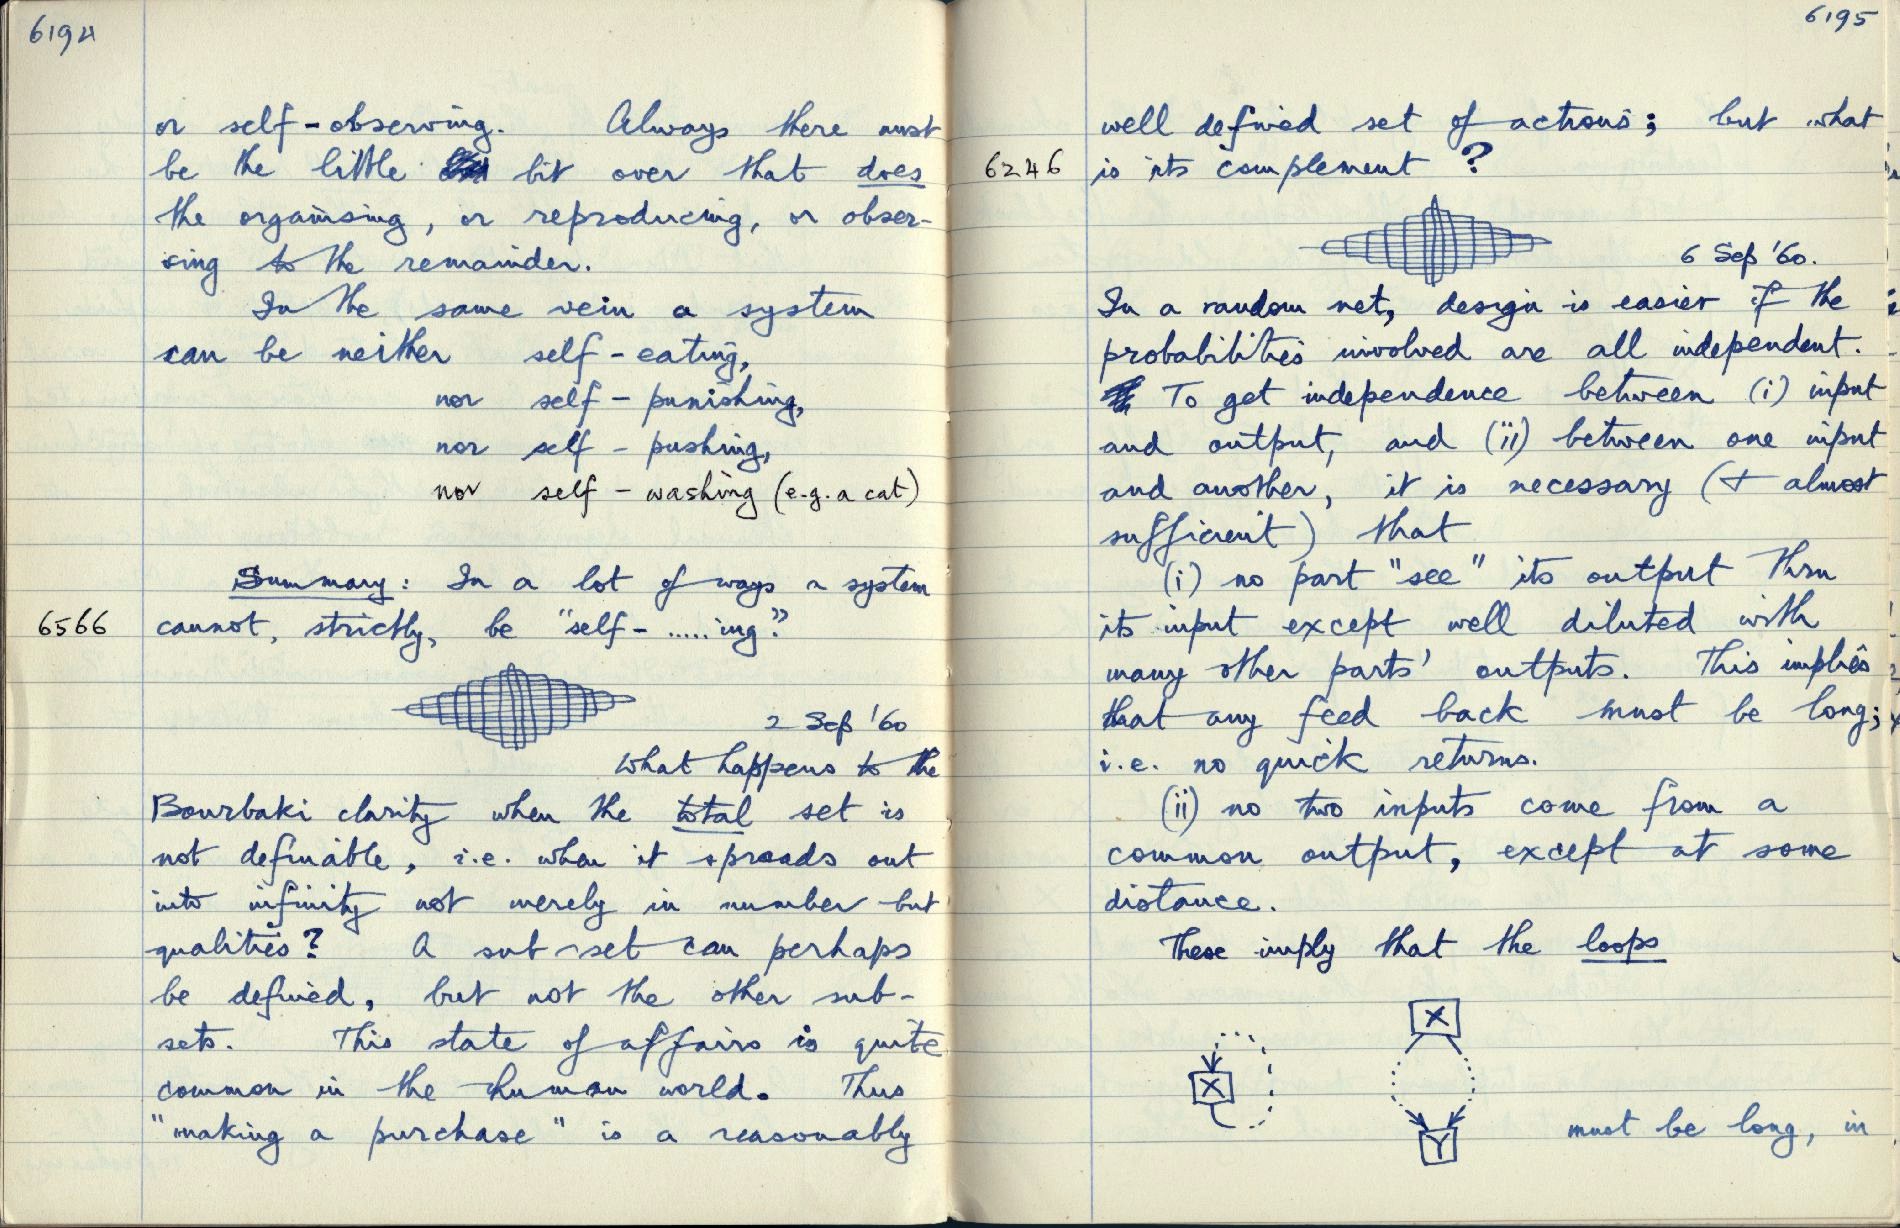 6194
or self-observing. Always there must
be the little bit over that does
the organising, or reproducing, or obser-
ving to the remainder.
In the same vein a system
can be neither self-eating,
nor self-punishing,
nor self-pushing,
nor self-washing (e.g. a cat)
Summary: In a lot of ways a system
6566 cannot, strictly, be "self-.....ing".
2 Sep '60
What happens to the
Bourbaki clarity when the total set is
not definable, i.e. when it spreads out
into infinity not merely in number but
qualities? A sub-set can perhaps
be defined, but not the other sub-
sets. This state of affairs is quite
common in the human world. Thus
"making a purchase" is a reasonably
6195
well defined set of actions; but what
6246 is its complement?
6 Sep '60.
In a random net, design is easier if the
probabilities involved are all independent.
To get independence between (i) input
and output, and (ii) between one input
and another, it is necessary (& almost
sufficient) that
(i) no part "see" its output thru
its input except well diluted with
many other parts' outputs. This implies
that any feed back must be long;
i.e. no quick returns.
(ii) no two inputs come from a
common output, except at some
distance.
These imply that the loops
X
X
Y
must be long, in